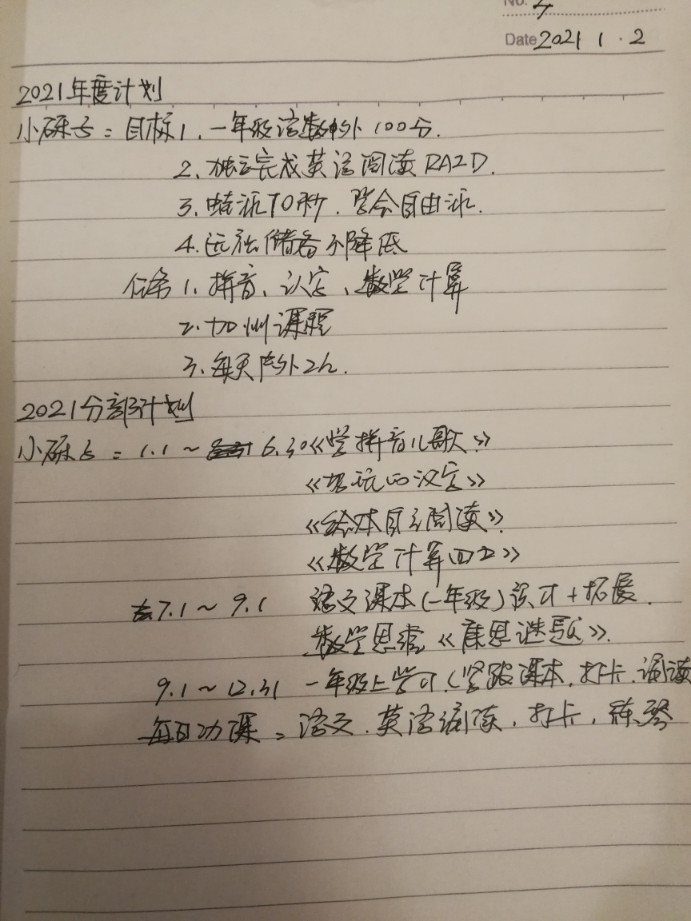 No. 4
Date 2021 1 · 2
2021年度计划
小砾子：目标1. 一年级语数外100分.
2. 完成英语阅读RAZD.
3. 蛙泳70秒. 学会自由泳.
4. 远视储备不降低
任务1. 拼音、认字、数学计算
2. 加州课程
3. 每天户外2h.
2021分部计划
小砾子：1.1～6.30《学拼音儿歌》
《好玩的汉字》
《绘本自主阅读》
《数学计算四本》
7.1～9.1 语文课本(一年级)识字+拓展.
数学思维《谜题》.
9.1～12.31 一年级上学习(紧跟课本,打卡.诵读
每日功课：语文.英语诵读,打卡,练琴